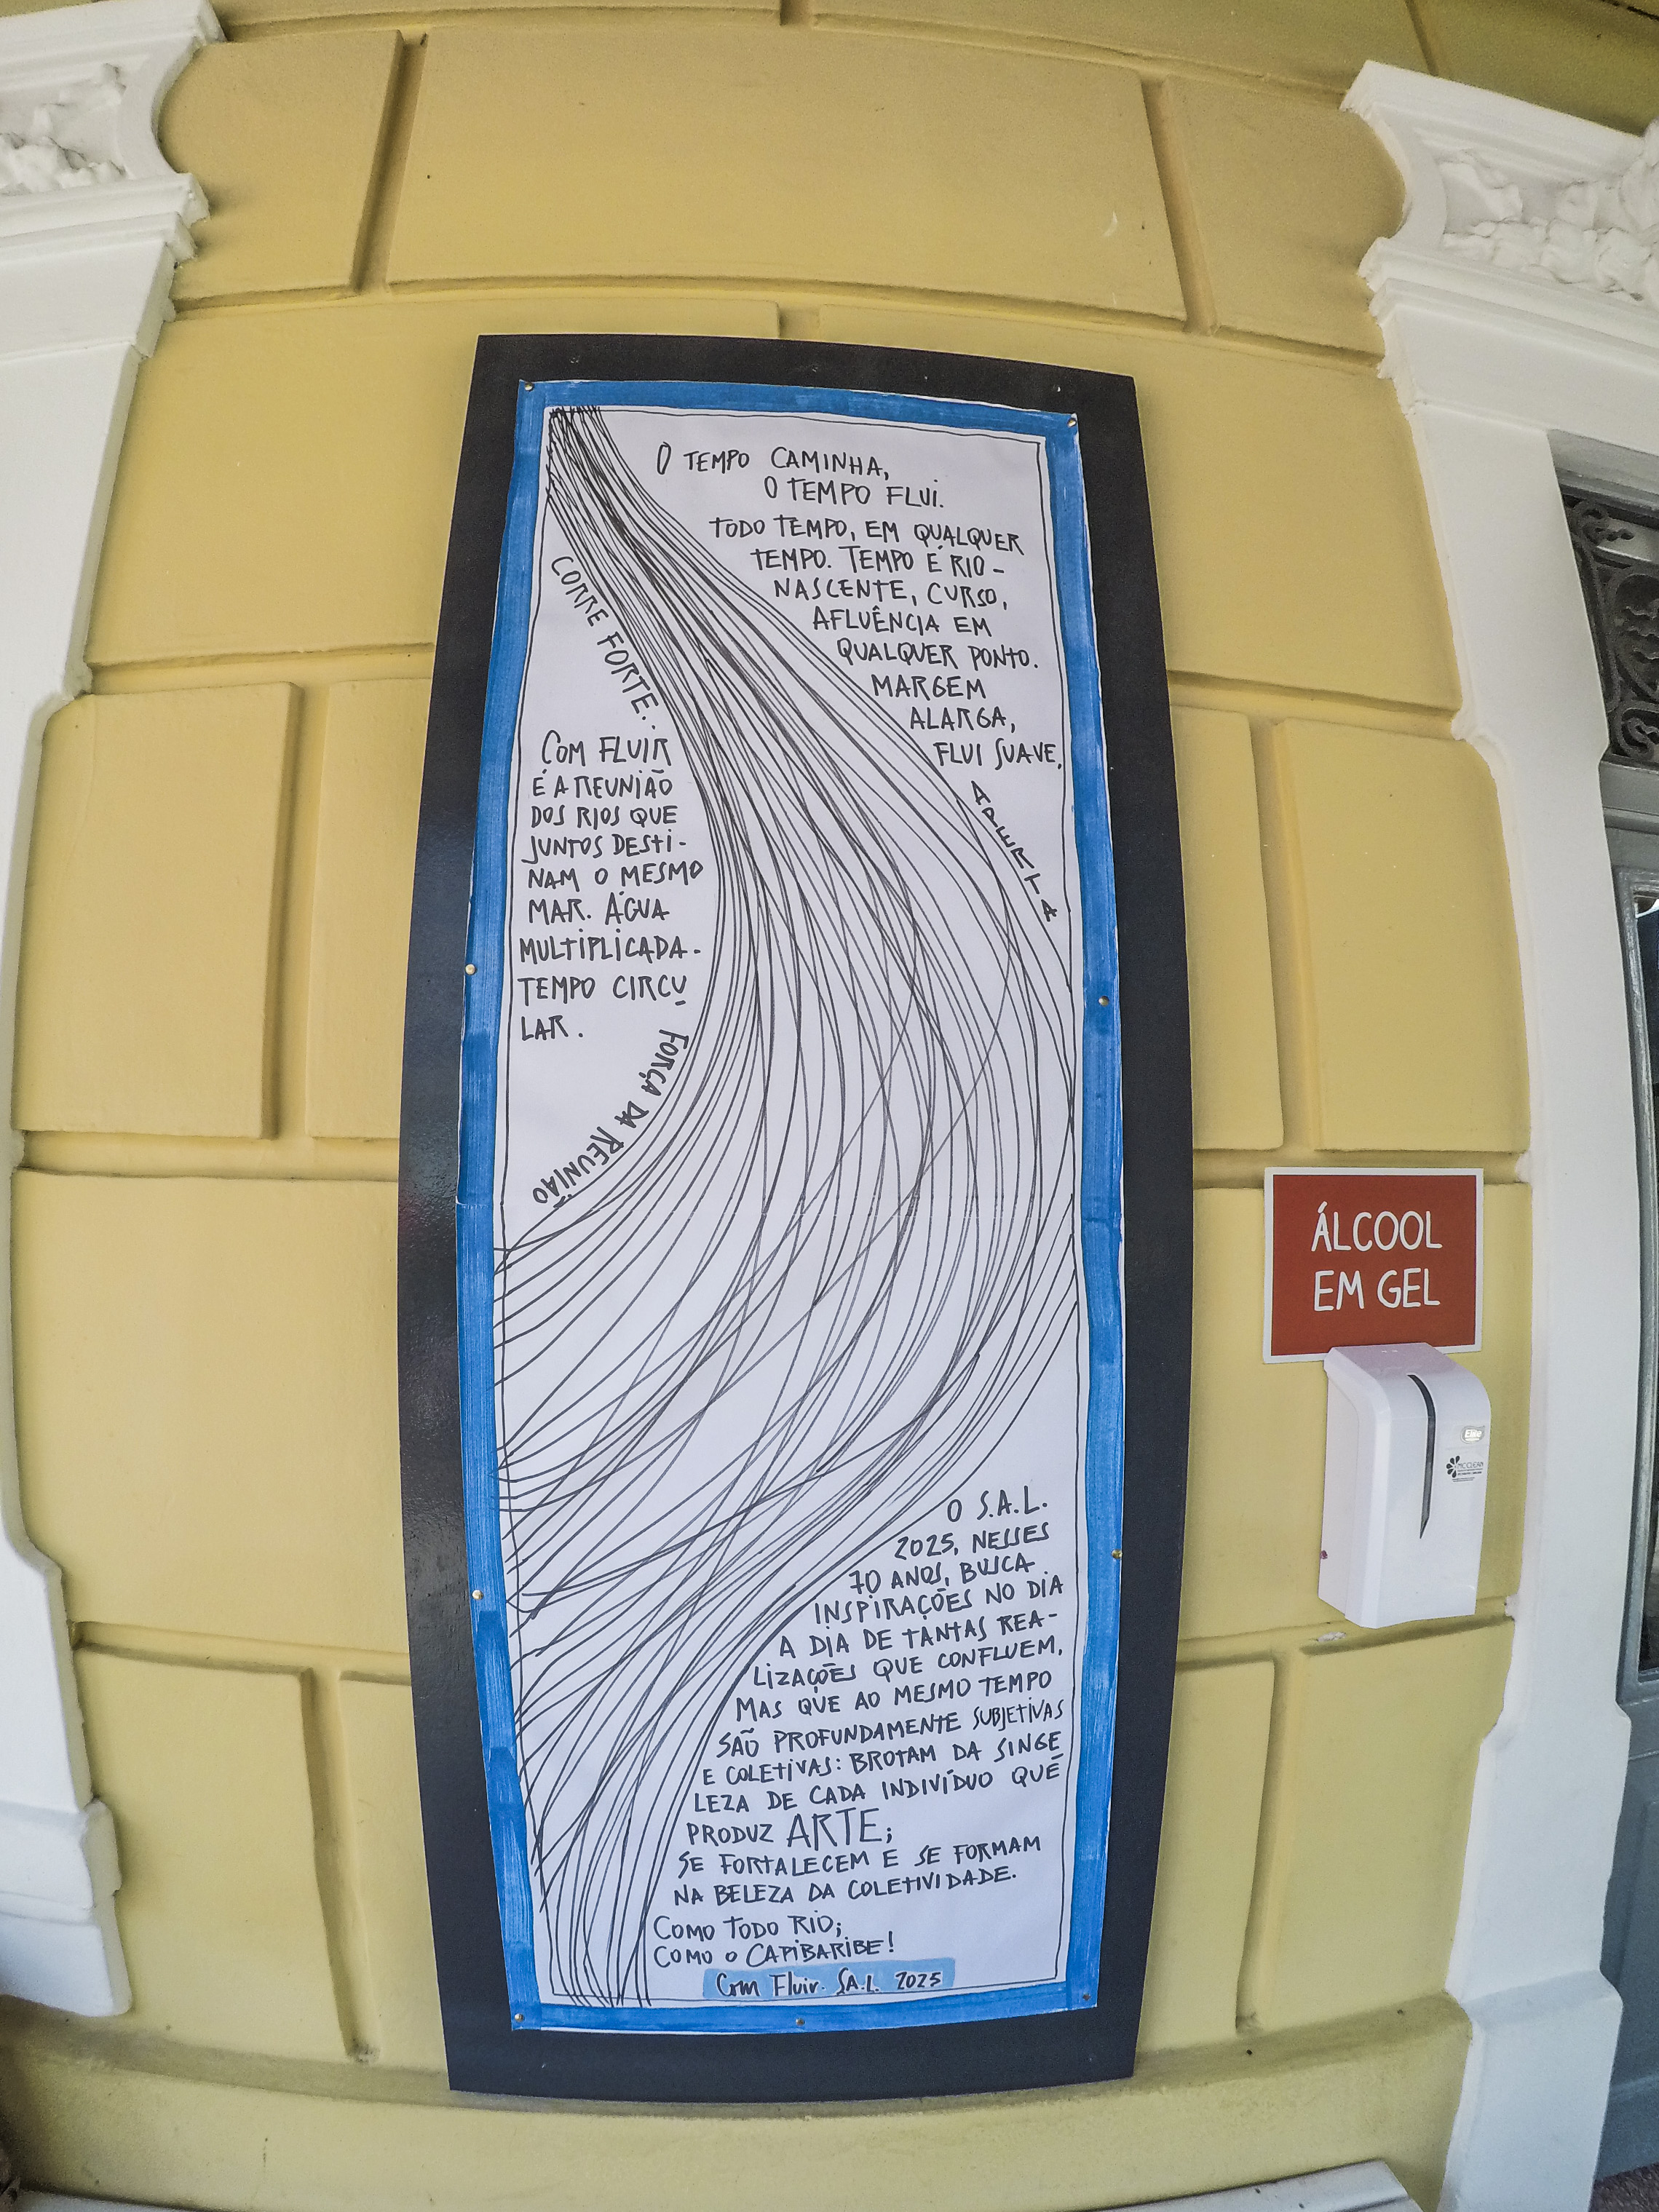 O TEMPO CAMINHA,
O TEMPO FLUI.
TODO TEMPO, EM QUALQUER
TEMPO. TEMPO É RIO -
NASCENTE, CURSO,
AFLUÊNCIA EM
QUALQUER PONTO.
MARGEM
ALARGA,
FLUI SUAVE,
APERTA
CORRE FORTE..
COM FLUIR
É A REUNIÃO
DOS RIOS QUE
JUNTOS DESTI-
NAM O MESMO
MAR. ÁGUA
MULTIPLICADA-
TEMPO CIRCU
LAR.
FORÇA DA REUNIÃO
O S.A.L.
2025, NESSES
70 ANOS, BUSCA
INSPIRAÇÕES NO DIA
A DIA DE TANTAS REA-
LIZAÇÕES QUE CONFLUEM,
MAS QUE AO MESMO TEMPO
SÃO PROFUNDAMENTE SUBJETIVAS
E COLETIVAS: BROTAM DA SINGE
LEZA DE CADA INDIVÍDUO QUE
PRODUZ ARTE;
SE FORTALECEM E SE FORMAM
NA BELEZA DA COLETIVIDADE.
COMO TODO RIO;
COMO O CAPIBARIBE!
Com Fluir. S.A.L. 2025
ÁLCOOL
EM GEL
Elite
MCCLEAN